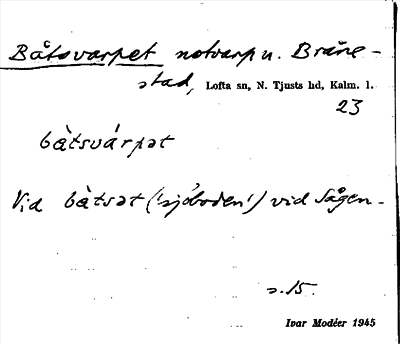 Båtsvarpet notvarp u. Bråne-
stad, Lofta sn, N. Tjusts hd, Kalm. l.
23
bå̀tsvárpət
Vid bå̀tsət ('sjöboden') vid Sågen-
s. 15.
Ivar Modéer 1945